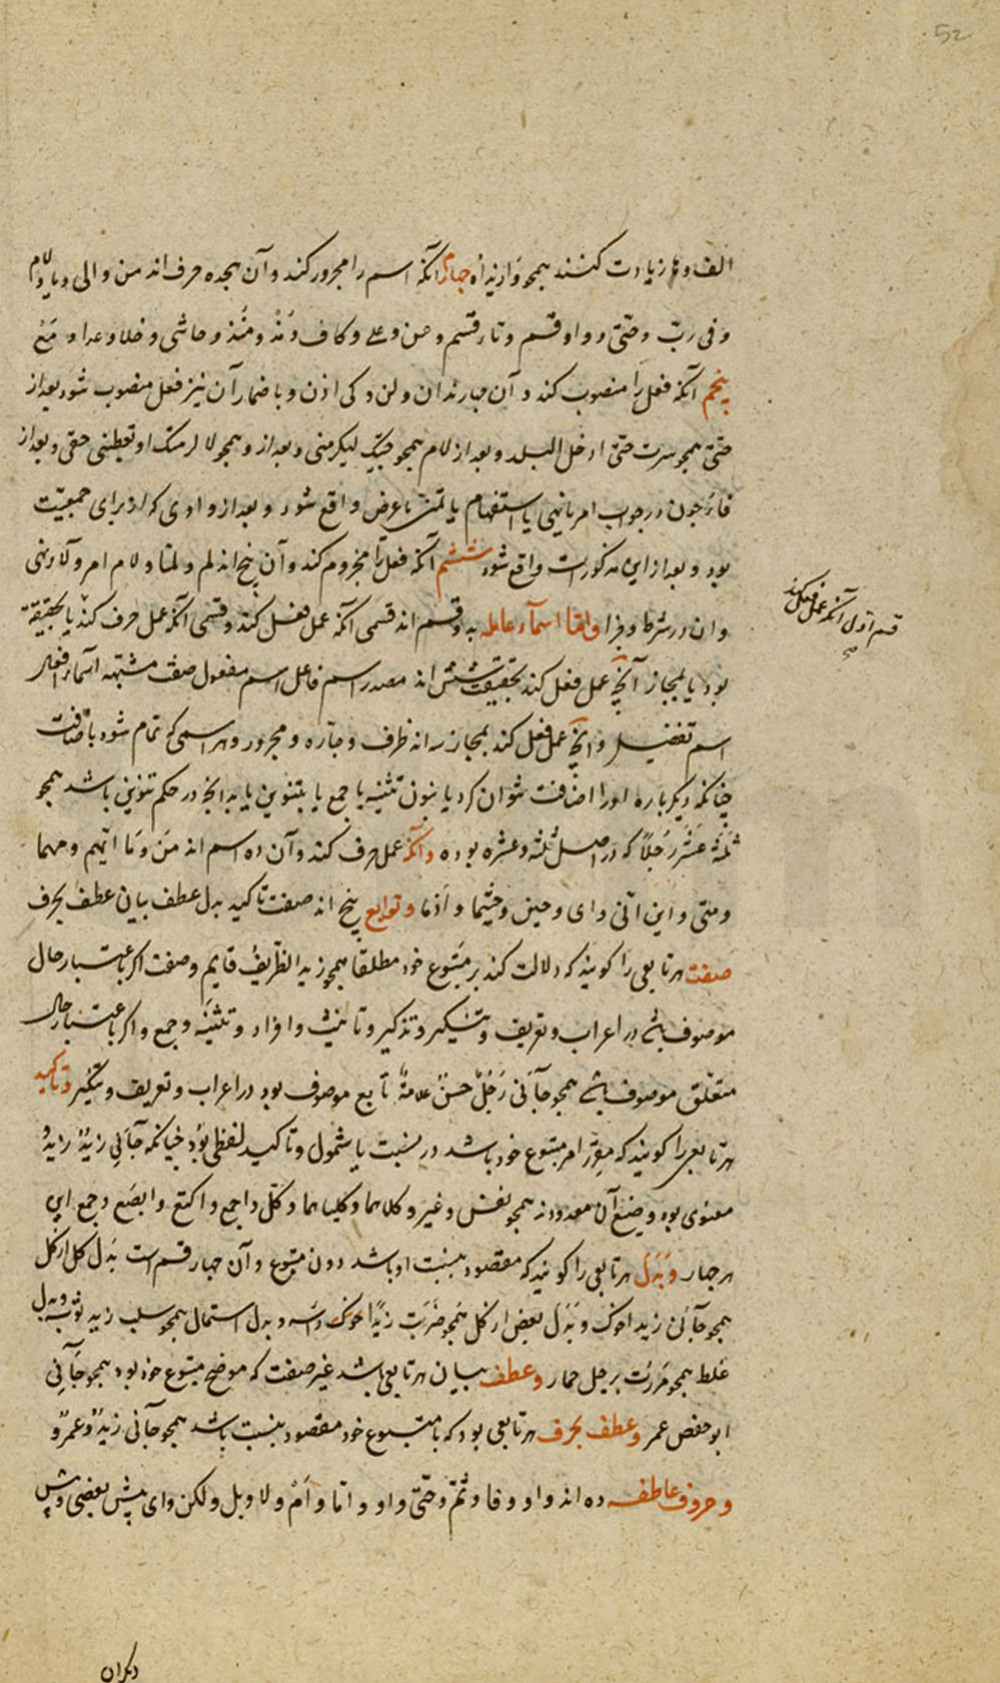 52
الف و ها زیادت کنند همچو وازیداه چهارم آنکه اسم را مجرور کند و آن هجده حرف اند من و الی و با و لام
و فی رب و حتی و واو قسم و تا قسم و عن و علی و کاف و مذ و منذ و حاشی و خلا و عدا و مع
پنجم آنکه فعل را منصوب کند و آن چهارند ان و لن و کی اذن و باضمار آن نیز فعل منصوب شود بعد از
حتی همچو سرت حتی ادخل البلد و بعد از لام همچو جئتک لیکرمنی و بعد از او همچو لالزمنک او تعطینی حقی و بعد از
فا چون در جواب امر یا نهی یا استفهام یا تمنی یا عرض واقع شود و بعد از واوی که از برای جمعیت
بود و بعد از این مذکورات واقع شود ششم آنکه فعل را مجزوم کند و آن پنج اند لم و لما و لام امر و لا نهی
و ان در شرط و جزا و اما اسماء عامله بدو قسم اند قسمی آنکه عمل فعل کند و قسمی آنکه عمل حرف کند یا بحقیقة
بود یا بمجاز آنچه عمل فعل کند بحقیقت شش اند مصدر اسم فاعل اسم مفعول صفت مشتبهه اسماء افعال
اسم تفضیل و آنچه عمل فعل کند بمجاز سه اند ظرف و جاره و مجرور و هر اسمی که تمام شود باضافت
چنانکه دیگر باره او را اضافت نتوان کرد یا بنون تثنیه یا جمع یا بتنوین یا بدانچه در حکم تنوین باشد همچو
ثلثة عشر رجلا که در اصل ثلثة و عشره بوده و آنکه عمل حرف کند و آن ده اسم اند من و ما ایهم و مهما
و متی و این انی و ای و حین و حیثما و اذما و توابع پنج اند صفت تاکید بدل عطف بیان عطف بحرف
صفت هر تابعی را کویند که دلالت کند بر متبوع خود مطلقا همچو زید الظریف قایم و صفت اکر باعتبار حال
موصوف باشد در اعراب و تعریف و تنکیر و تذکیر و تانیث و افراد و تثنیه و جمع و اکر باعتبار حال
متعلق موصوف باشد همچو جآنی رجل حسن غلامه تابع موصوف بود در اعراب و تعریف و تنکیر و تاکید
هر تابعی را کویند که مقرر امر متبوع خود باشد در نسبت یا شمول و تاکید لفظی بود چنانکه جآنی زید زید و
معنوی بود و صیغ آن معدودند همچو نفس و غیر و کلاهما و کلیاهما و کل و اجمع و اکتع و ابصع و جمع این
هر چهار و بدل هر تابعی را کویند که مقصود بنسبت او باشد دون متبوع و آن چهار قسم است بدل کل از کل
همچو جآنی زید اخوک و بدل بعض از کل همچو ضربت زیدا راسه و بدل اشتمال همچو سلب زید ثوبه و بدل
غلط همچو مررت برجل حمار و عطف بیان هر تابعی باشد غیر صفت که موضح متبوع خود بود همچو جآنی
ابو حفص عمر و عطف بحرف هر تابعی بود که با متبوع خود مقصود بنسبت باشد همچو جآنی زید و عمرو
و حروف عاطفه ده اند واو و فا و ثم و حتی و او و اما و ام و لا و بل و لکن و ای پیش بعضی و پیش
قسم اول آنکه عمل فعل کند
دیکران